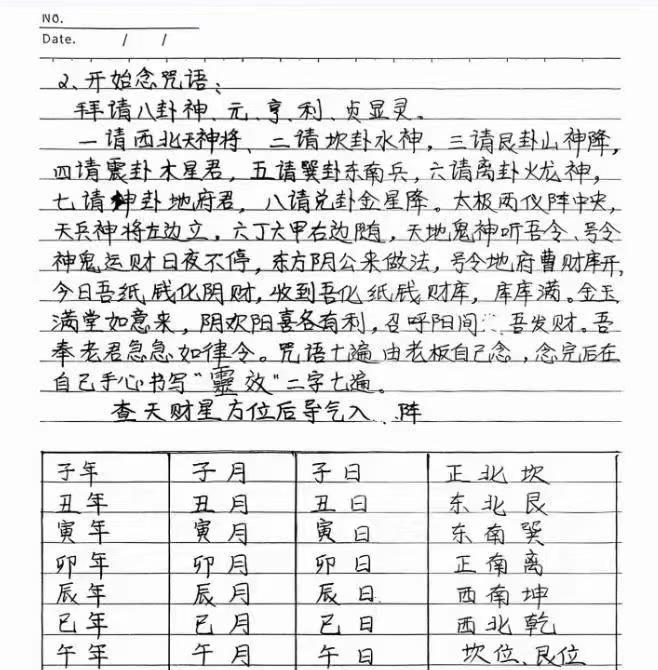 No.
Date. / /
2、开始念咒语：
拜请八卦神、元、亨、利、贞显灵。
一请西北天神将、二请坎卦水神，三请艮卦山神降，
四请震卦木星君，五请巽卦东南兵，六请离卦火龙神，
七请坤卦地府君，八请兑卦金星降。太极两仪阵中央，
天兵神将左边立，六丁六甲右边随，天地鬼神听吾令、号令
神鬼运财日夜不停，东方阴公来做法，号令地府曹财库开，
今日吾纸钱化阴财，收到吾化纸钱财库，库库满。金玉
满堂如意来，阴欢阳喜各有利，召呼阳间 吾发财。吾
奉老君急急如律令。咒语七遍由老板自己念，念完后在
自己手心书写"靈效"二字七遍。
查天财星方位后导气入、阵
子年 子月 子日 正北坎
丑年 丑月 丑日 东北艮
寅年 寅月 寅日 东南巽
卯年 卯月 卯日 正南离
辰年 辰月 辰日 西南坤
巳年 巳月 巳日 西北乾
午年 午月 午日 坎位、艮位